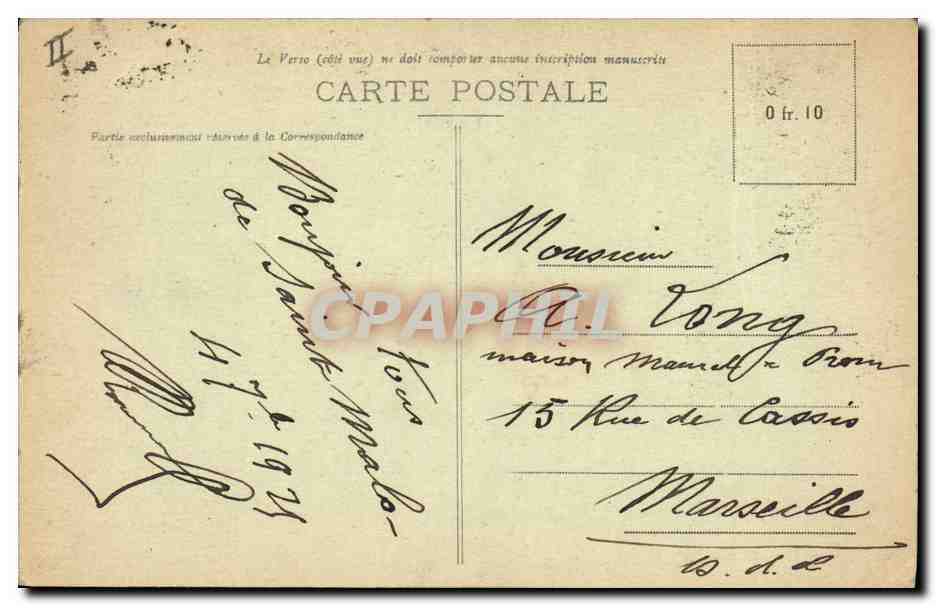 II
Le Verso (côté vue) ne doit comporter aucune inscription manuscrite
CARTE POSTALE
Partie exclusivement réservée à la Correspondance
0 fr. 10
Bonjour à tous
de Saint Malo-
4 7bre 1921
Monsieur
A. Long
maison Maurel & Prom
15 Rue de Cassis
Marseille
B. d. R.
CPAPHIL